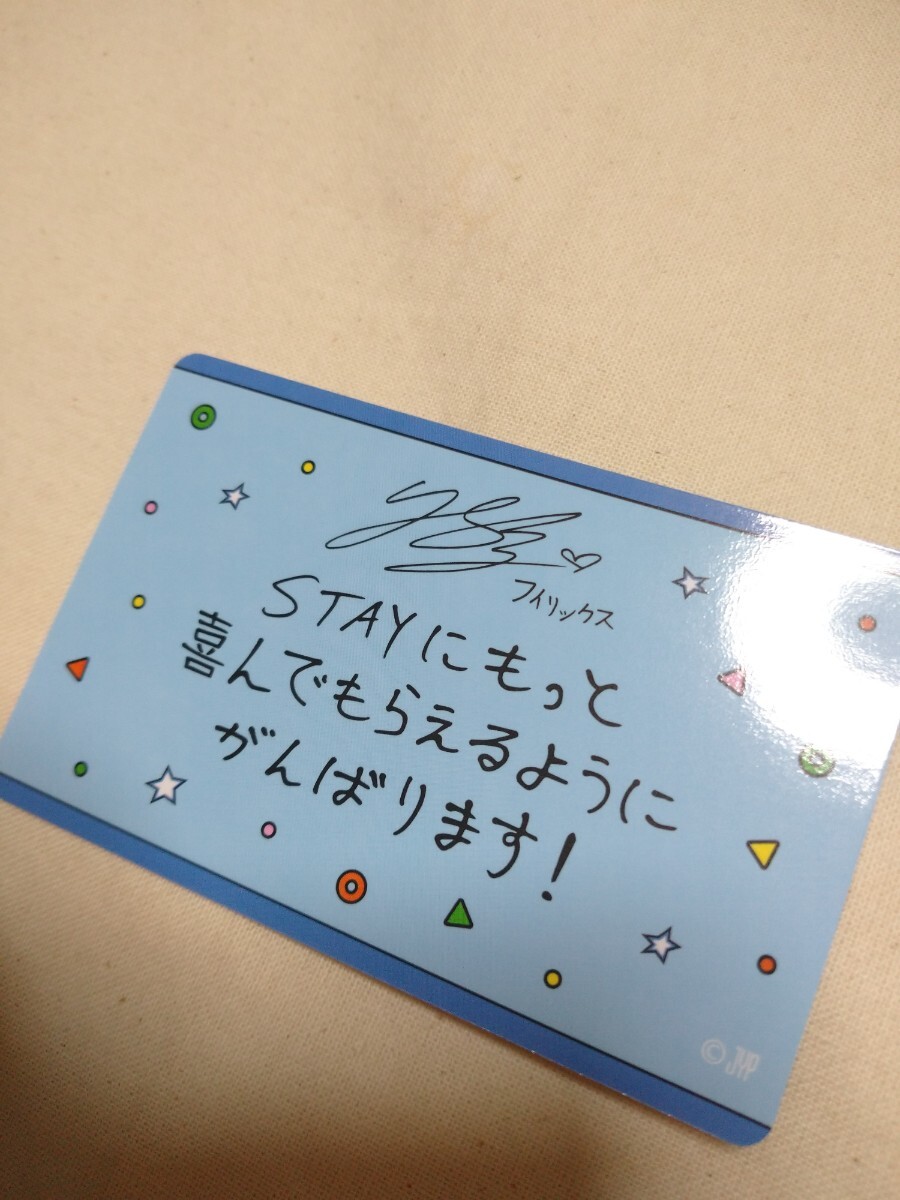 フィリックス
STAYにもっと
喜んでもらえるように
がんばります!
© JYP